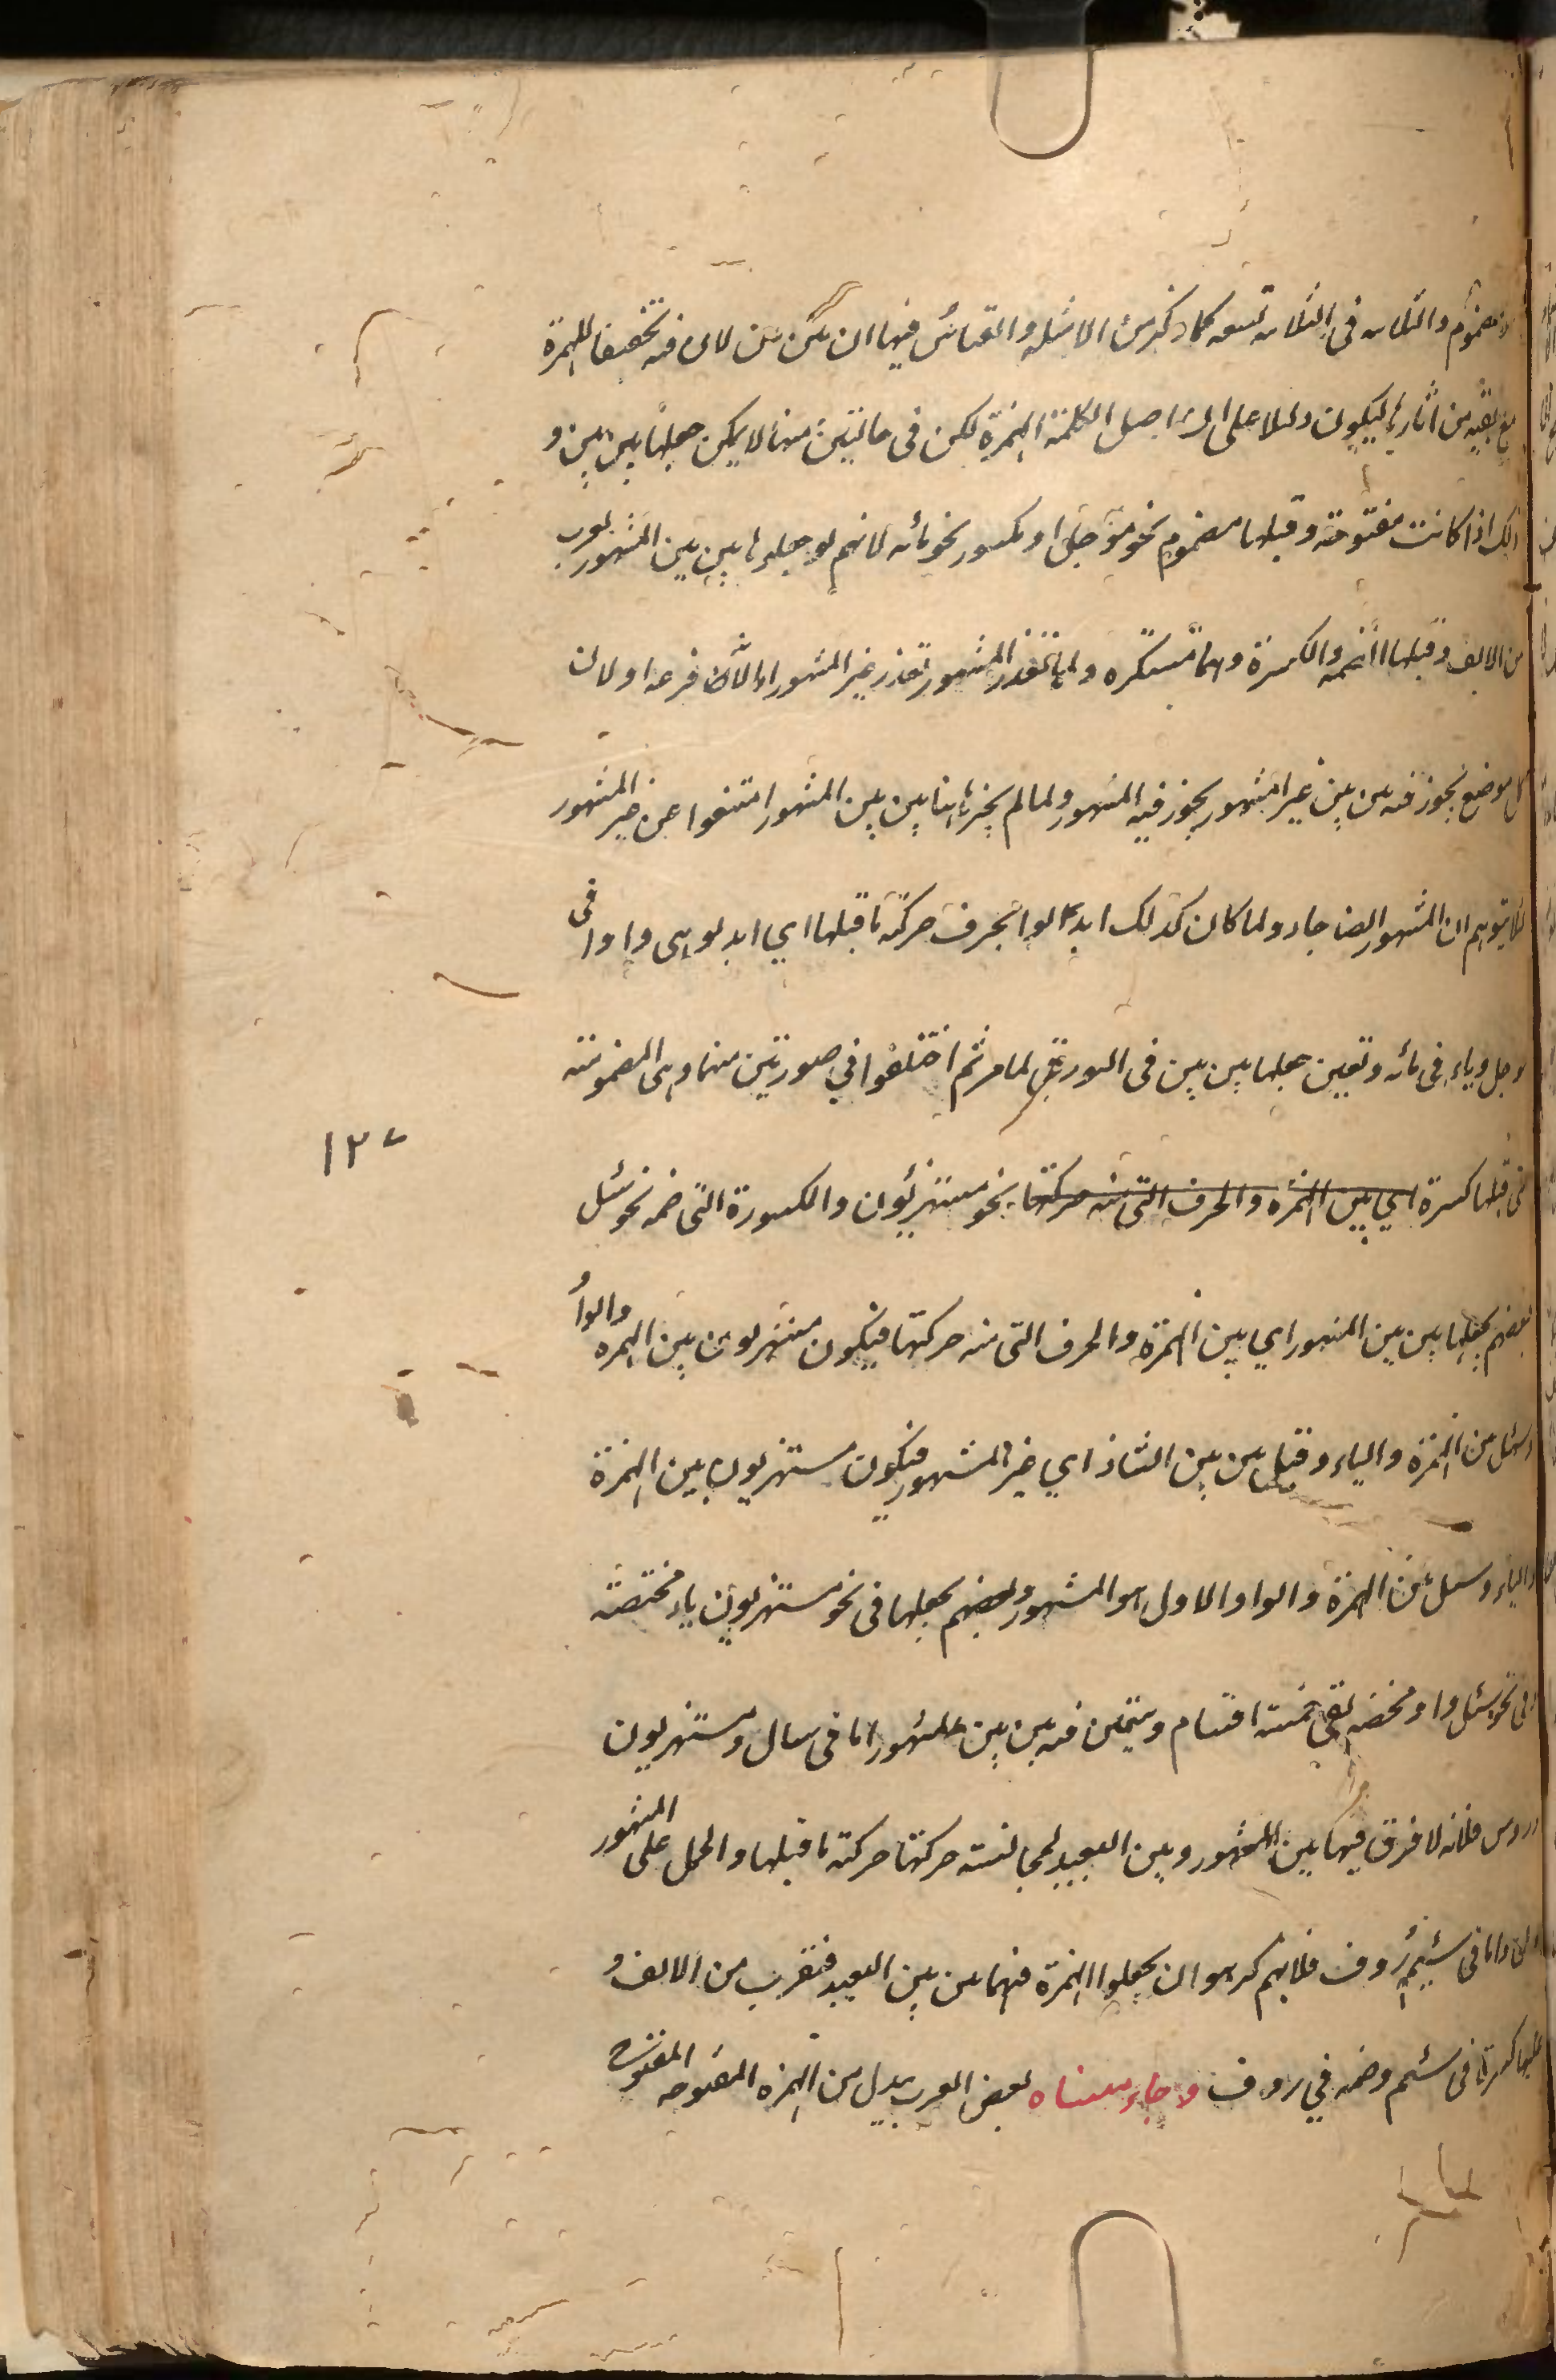 ومضموم والثلاثه فى الثلاثه تسعه كما ذكر من الامثله والقياس فيها ان يكن بين لان فيه تخفيفا للهمزة
مع بقيه من اثارها ليكون دليلا على ان اصل الكلمة الهمزة لكن فى حالتين منها لا يمكن جعلها بين بين و
ذلك اذا كانت مفتوحة وقبلها مضموم نحو مؤجل او مكسور نحو مائه لانهم لو جعلوها بين بين المشهور لقرب
من الالف وقبلها الضمه والكسرة وهما مستكره ولما تعذر المشهور تعذر غير المشهور اما لانه فرعه او لان
كل موضع يجوز فيه بين بين غير المشهور يجوز فيه المشهور ولما لم يجز هاهنا بين بين المشهور امتنعوا عن غير المشهور
لئلا يتوهم ان المشهور ايضا جاز ولما كان كذلك ابدالوا بحرف حركة ما قبلها اي ابدلوهى واوا فى
موجل وياء فى مائه وتعين جعلها بين بين فى الصور بقى لما مر ثم اختلفوا في صورتين منها وهى المضمومة
التى قبلها كسرة اي بين الهمزه والحرف التى منه حركتها نحو مستهزئون والمكسورة التى ضمه نحو سئل
بعضهم يجعلها بين بين المشهور اي بين الهمزة والحرف التى منه حركتها فيكون مستهزيون بين الهمزه والواو
وسئل بين الهمزة والياء وقيل بين بين الشاذ اي غير المشهور فيكون مستهزيون بين الهمزة
والياء وسئل بين الهمزة والواو والاول هو المشهور وبعضهم يجعلها فى نحو مستهزيون ياء مختصة
وفى نحو سئل واو مخضه بقى خمسة اقسام ويتعين فيه بين بين المشهور اما فى سال ومستهزيون
وروس فلانه لا فرق فيها بين المشهور وبين البعيد لمجانسة حركتها حركة ما قبلها والحمل على المشهور
اولى واما فى سئم ورؤف فلانهم كرهوا ان يجعلوا الهمزة فيهما بين بين البعيد فتقرب من الالف و
قبلها كسرة فى سئم وضمه في روف وجاء منساه بعض العرب يبدل من الهمزه المفتوحه المفتوح
١٢٧